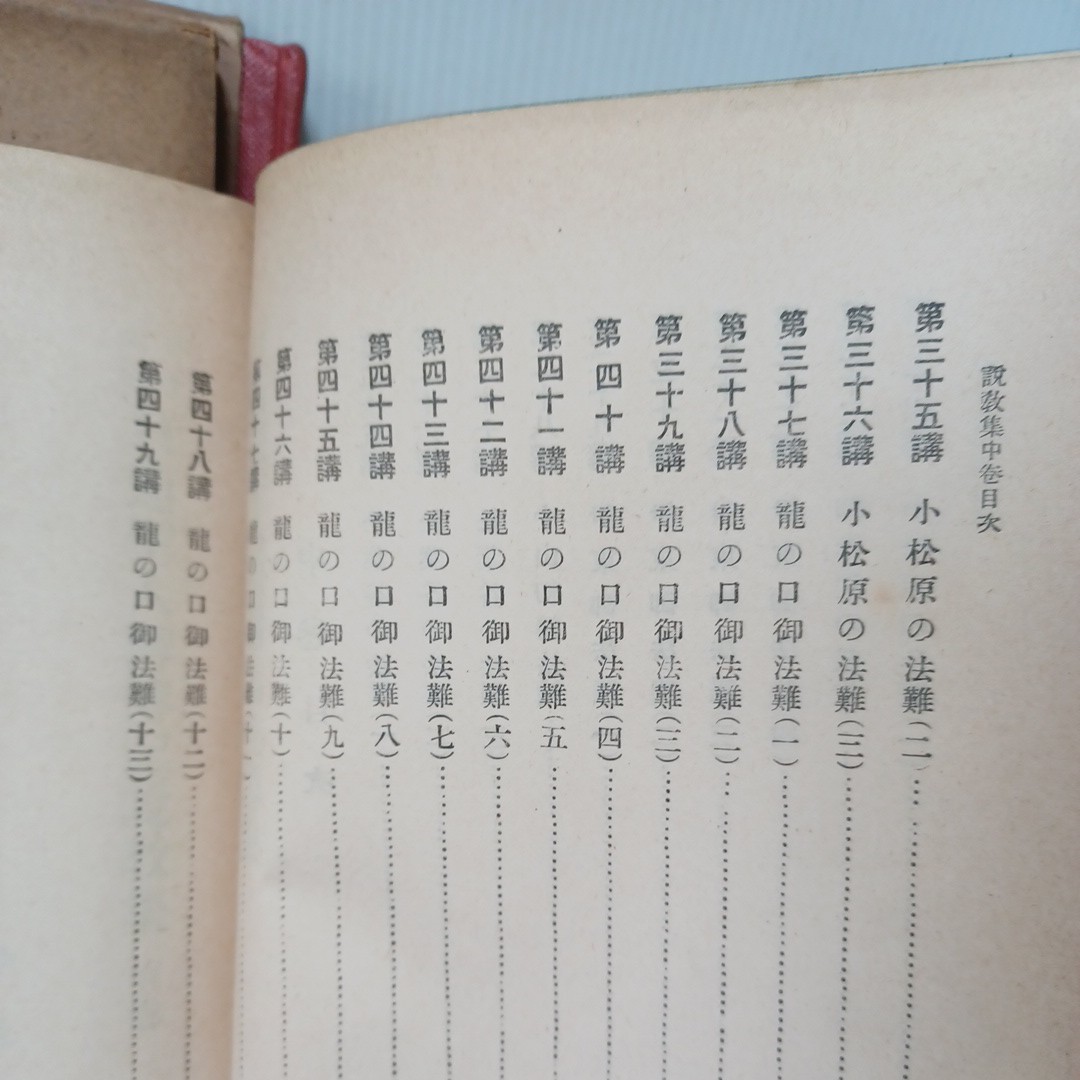 説教集中卷目次
第三十五講 小松原の法難(二)
第三十六講 小松原の法難(三)
第三十七講 龍の口御法難(一)
第三十八講 龍の口御法難(二)
第三十九講 龍の口御法難(三)
第四十講 龍の口御法難(四)
第四十一講 龍の口御法難(五
第四十二講 龍の口御法難(六)
第四十三講 龍の口御法難(七)
第四十四講 龍の口御法難(八)
第四十五講 龍の口御法難(九)
第四十六講 龍の口御法難(十)
第四十七講 龍の口御法難(十一)
第四十八講 龍の口御法難(十二)
第四十九講 龍の口御法難(十三)